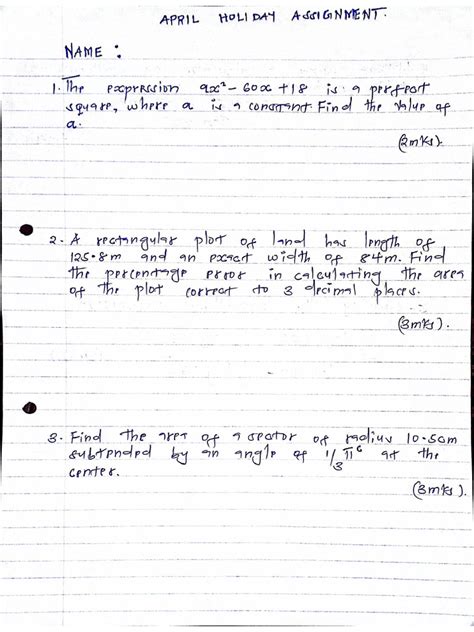 APRIL HOLIDAY ASSIGNMENT.
NAME :
1. The expression ax² - 60x + 18 is a perfect
square, where a is a constant. Find the value of
a.
(2mks).
2. A rectangular plot of land has length of
125.8m and an exact width of 84m. Find
the percentage error in calculating the area
of the plot correct to 3 decimal places.
(3mks).
3. Find the area of a sector of radius 10.5cm
subtended by an angle of 1/3 π^c at the
center.
(3mks).